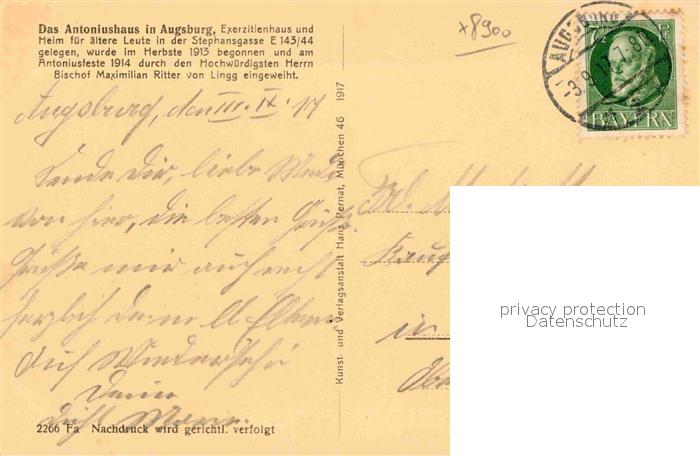 Das Antoniushaus in Augsburg, Exerzitienhaus und
Heim für ältere Leute in der Stephansgasse E 143/44
gelegen, wurde im Herbste 1913 begonnen und am
Antoniusfeste 1914 durch den Hochwürdigsten Herrn
Bischof Maximilian Ritter von Lingg eingeweiht.
+8900
AUGSBURG
7 P
BAYERN
Augsburg, den III. IX. 17
Sende Dir, liebe
von hier, die besten Grüße.
Grüße mir auch recht
herzlich Deine lb. Eltern
Auf Wiedersehn
Deine
Kunst- und Verlagsanstalt Hans Pernat, München 46 1917
in
privacy protection
Datenschutz
2266 Fa Nachdruck wird gerichtl. verfolgt